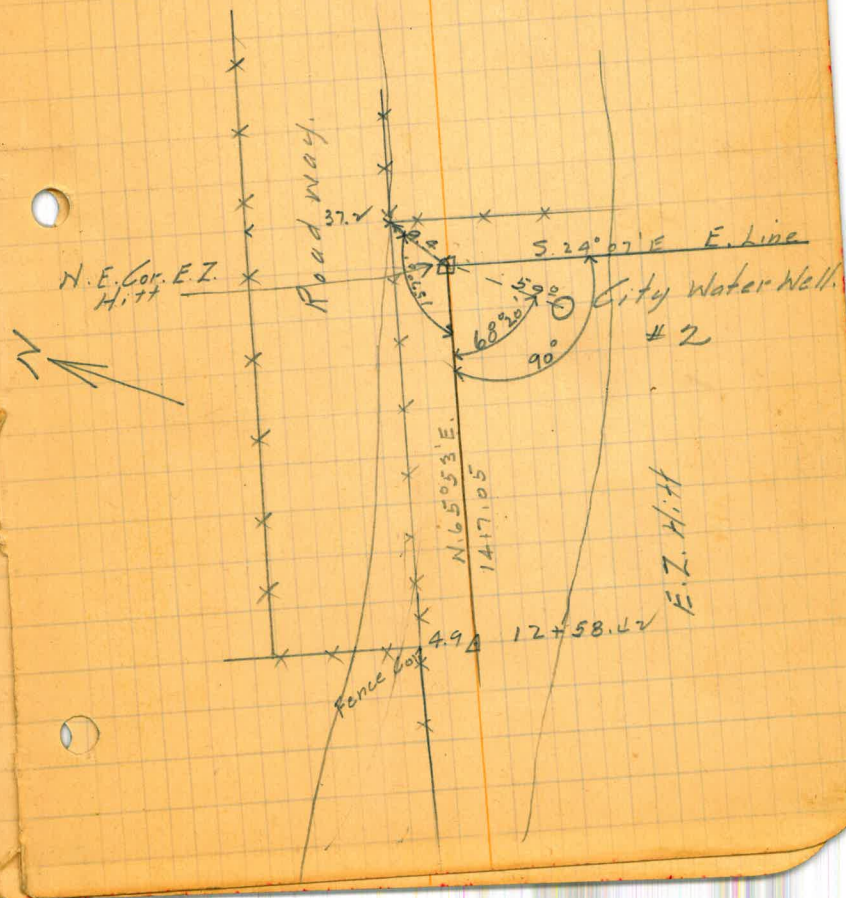 Road way.
37.2
S. 24° 07' E E. Line
N. E. Cor. E. Z.
Hitt
59°
City Water Well.
# 2
68° 20'
90°
N. 65° 53' E.
1417.05
E. Z. Hitt
4.9
Fence Cor.
N